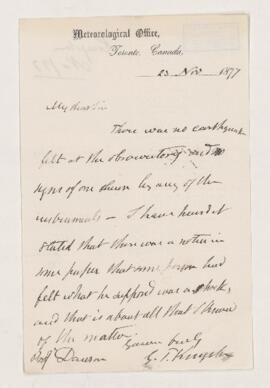 Meteorological Office,
Toronto, Canada.
23 Nov 1877
My dear Sir
There was no earthquake
felt at the observatory and no
signs of one shewn by any of the
instruments – I have heard it
stated that there was a notice in
some paper that some person had
felt what he supposed was a shock,
and that is about all that I know
of the matter
Yours truly
Dawson
G. T. Kingston